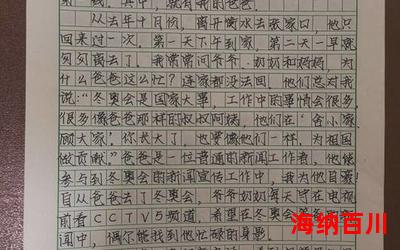 献,其中,就有我的爸爸。
从去年十月份,离开衡水去张家口,他只
回来过一次。第一天下午到家,第二天一早就
匆匆离去了。我常常问爷爷、奶奶和妈妈,为
什么爸爸这么忙?连家都没法回。他们总对我
说:“冬奥会是国家大事,工作中的事情会很多,
很多像爸爸那样的叔叔阿姨,他们在‘舍小家,
顾大家’。你长大了,也要像他们一样,为祖国
做贡献。”爸爸是一位普通的新闻工作者,他能
参与到冬奥会的新闻宣传工作中,我为他自豪!
自从爸爸去了冬奥会,爷爷奶奶每天守在电视
前看CCTV5频道,希望在冬奥会
闻中,偶尔能找到他忙碌的身影。
海纳百川